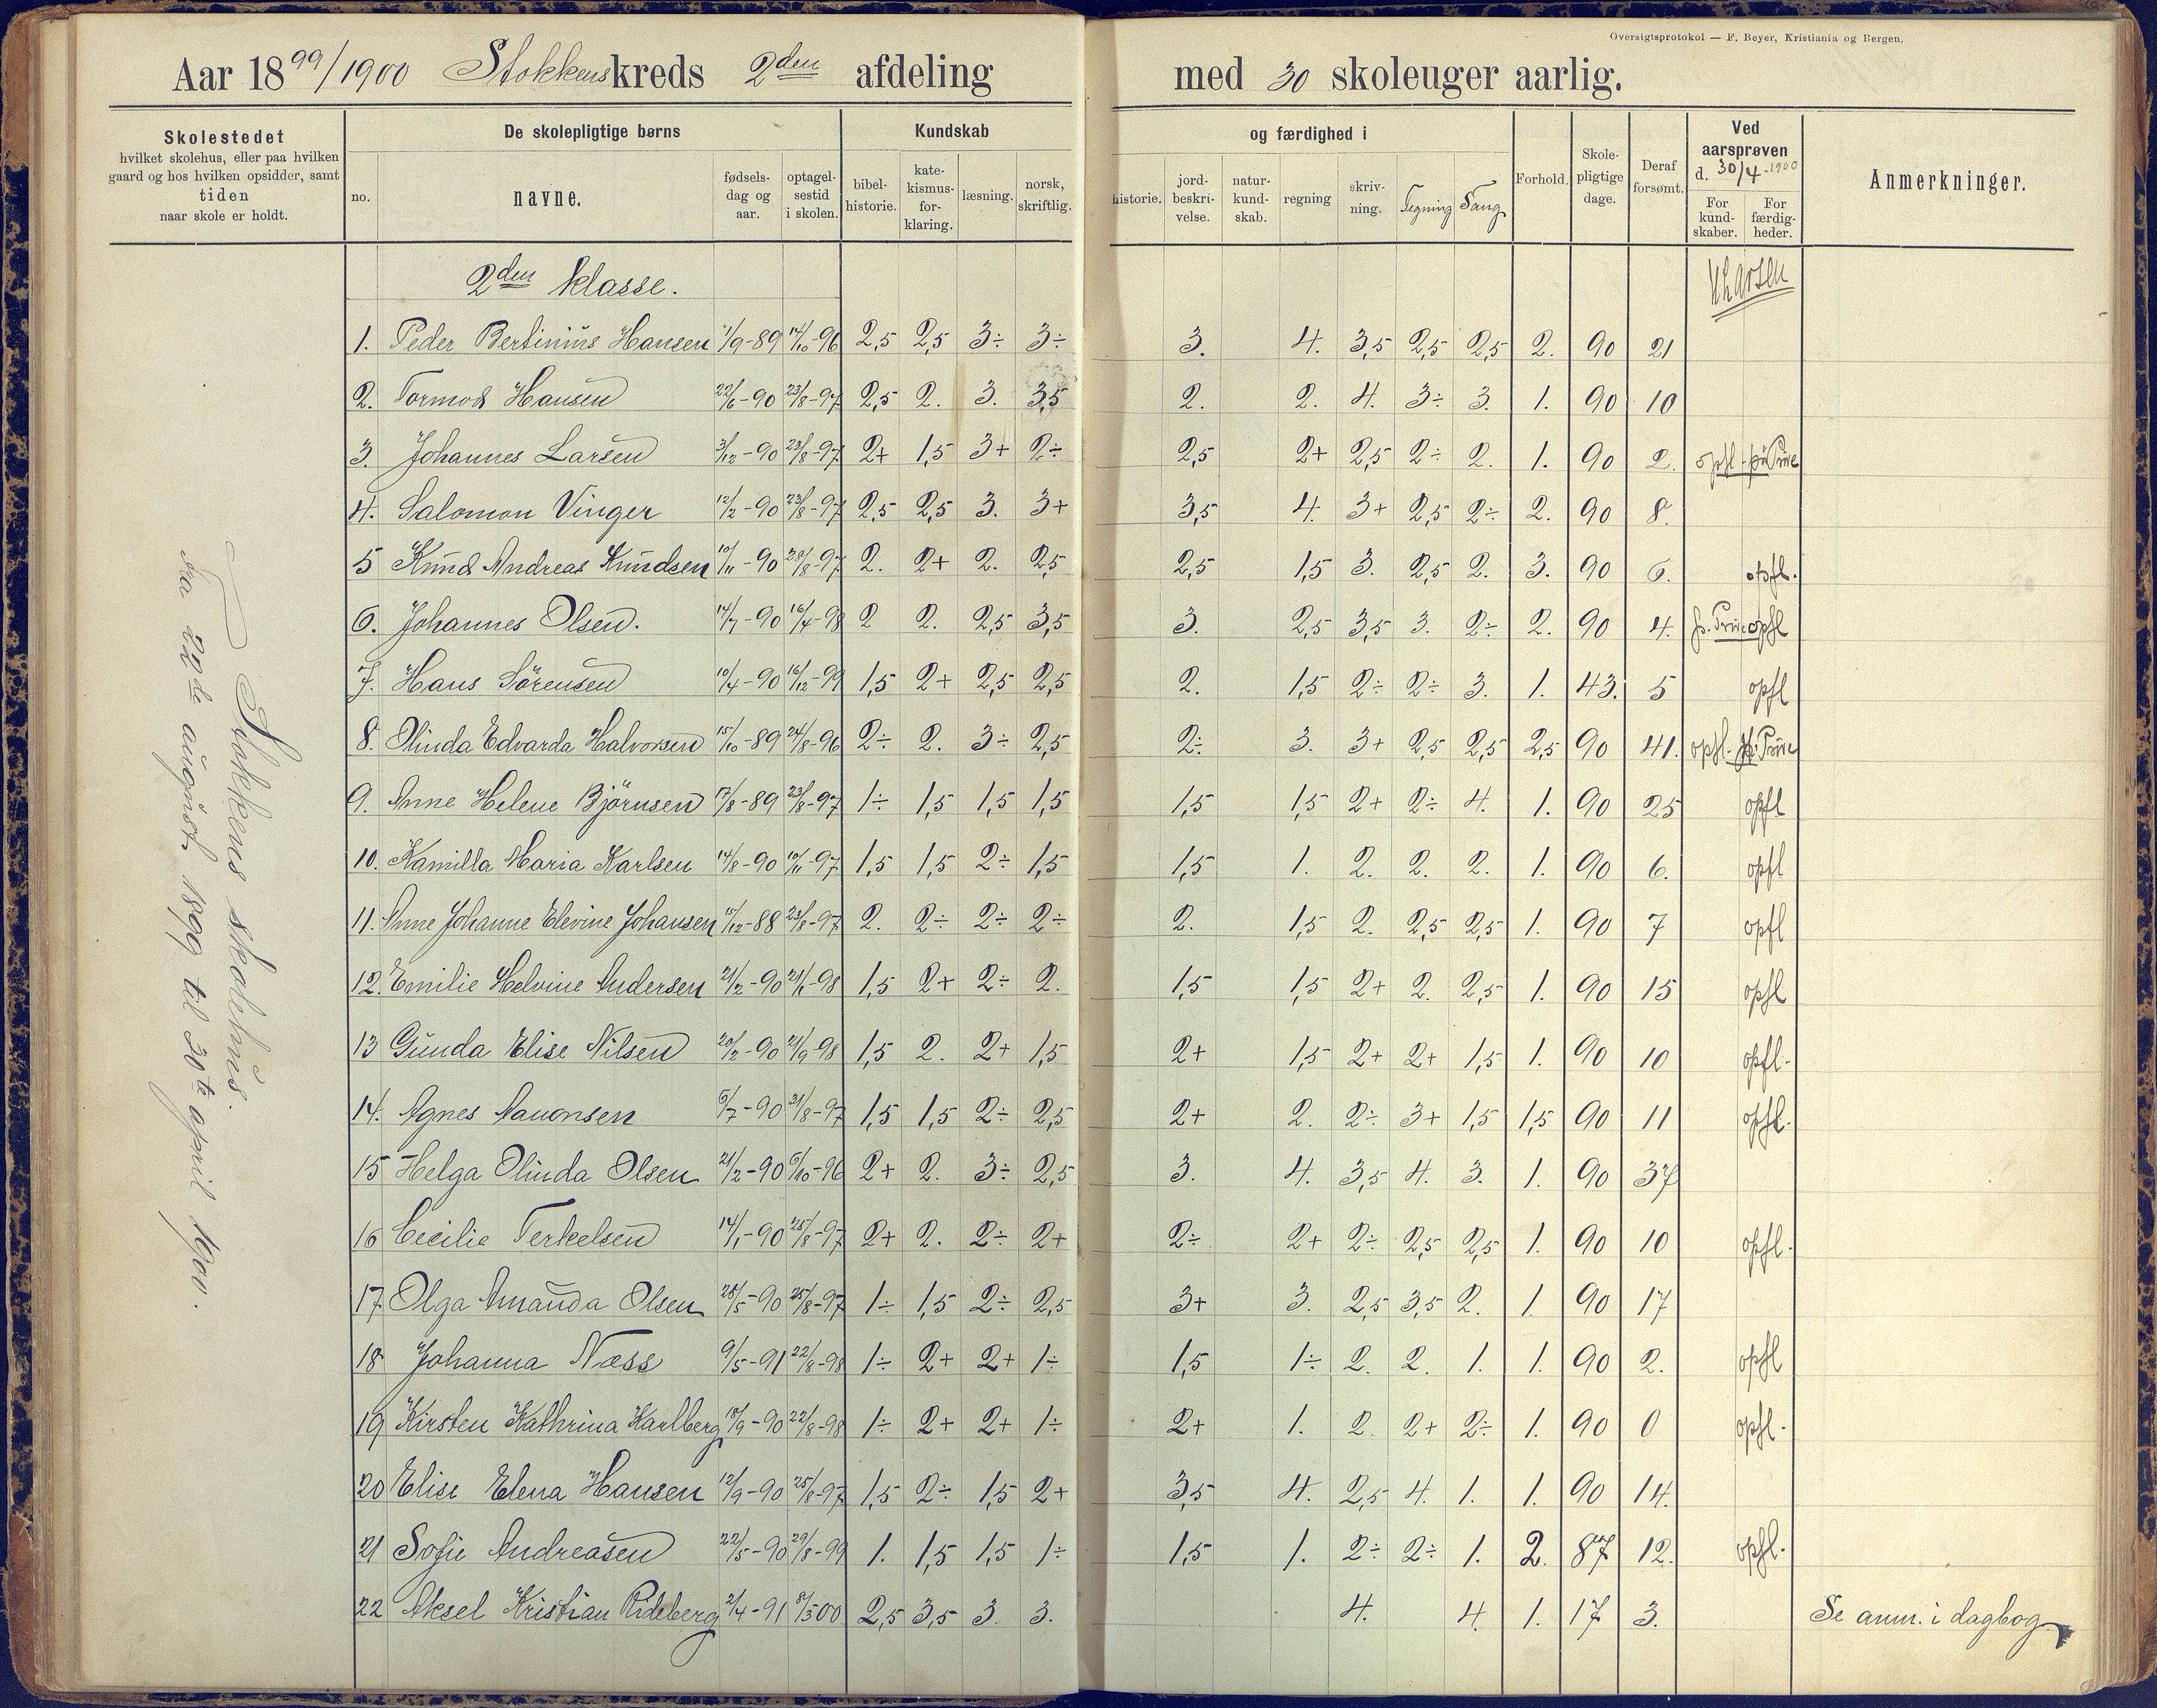 Oversigtsprotokol — F. Beyer, Kristiania og Bergen.
Aar 1899/1900 Stokkens kreds 2den afdeling med 30 skoleuger aarlig.
Skolestedet
hvilket skolehus, eller paa hvilken
gaard og hos hvilken opsidder, samt
tiden
naar skole er holdt.
De skolepligtige børns
no.
navne.
fødsels-
dag og
aar.
optagel-
sestid
i skolen.
Kundskab
bibel-
historie.
kate-
kismus-
for-
klaring.
læsning.
norsk,
skriftlig.
og færdighed i
historie.
jord-
beskri-
velse.
natur-
kund-
skab.
regning
skriv-
ning.
Tegning
Sang
Forhold.
Skole-
pligtige
dage.
Deraf
forsømt.
Ved
aarsprøven
d. 30/4-1900
For
kund-
skaber.
For
færdig-
heder.
Anmerkninger.
I Stokkens skolehus.
fra 22de august 1899 til 30te april 1900.
2den klasse.
1. Peder Bertinius Hansen 1/9-89 14/10-96 2,5 2,5 3÷ 3÷ 3. 4. 3,5 2,5 2,5 2. 90 21
2. Tormod Hansen 22/6-90 23/8-97 2,5 2. 3. 3,5 2. 2. 4. 3÷ 3. 1. 90 10
3. Johannes Larsen 3/12-90 23/8-97 2+ 1,5 3+ 2÷ 2,5 2+ 2,5 2÷ 2. 1. 90 2. opfl.
4. Salomon Vinger 12/2-90 23/8-97 2,5 2,5 3. 3+ 3,5 4. 3+ 2,5 2÷ 2. 90 8.
5 Knud Andreas Knudsen 10/11-90 28/8-97 2. 2+ 2. 2,5 2,5 1,5 3. 2,5 2. 3. 90 6. opfl.
6. Johannes Olsen. 14/7-90 16/4-98 2 2. 2,5 3,5 3. 2,5 3,5 3. 2÷ 2. 90 4. opfl
7. Hans Sörensen 10/4-90 16/12-99 1,5 2+ 2,5 2,5 2. 1,5 2÷ 2÷ 3. 1. 43. 5 opfl
8. Olinda Edvarda Halvorsen 15/10-89 24/8-96 2÷ 2. 3÷ 2,5 2÷ 3. 3+ 2,5 2,5 2,5 90 41. opfl.
9. Anne Helene Björnsen 17/8-89 23/8-97 1÷ 1,5 1,5 1,5 1,5 1,5 2+ 2÷ 4. 1. 90 25 opfl
10. Kamilla Maria Karlsen 14/8-90 10/11-97 1,5 1,5 2÷ 1,5 1,5 1. 2. 2. 2. 1. 90 6. opfl
11. Anne Johanne Elevine Johansen 15/12-88 23/8-97 2. 2÷ 2÷ 2÷ 2. 1,5 2. 2,5 2,5 1. 90 7 opfl
12. Emilie Helvine Andersen 21/2-90 21/1-98 1,5 2+ 2÷ 2. 1,5 1,5 2+ 2. 2,5 1. 90 15 opfl
13 Gunda Elise Nilsen 20/2-90 21/9-98 1,5 2. 2+ 1,5 2+ 1,5 2+ 2+ 1,5 1. 90 10 opfl.
14. Agnes Aanonsen 6/7-90 31/8-97 1,5 1,5 2÷ 2,5 2+ 2. 2÷ 3+ 1,5 1,5 90 11 opfl.
15 Helga Olinda Olsen 21/2-90 6/10-96 2+ 2. 3÷ 2,5 3. 4. 3,5 4. 3. 1. 90 37
16 Cecilie Terkelsen 14/1-90 25/8-97 2+ 2. 2÷ 2+ 2÷ 2+ 2÷ 2,5 2,5 1. 90 10 opfl.
17. Olga Amanda Olsen 28/5-90 25/8-97 1÷ 1,5 2÷ 2,5 3+ 3. 2,5 3,5 2. 1. 90 17
18 Johanna Næss 9/5-91 22/8-98 1÷ 2+ 2+ 1÷ 1,5 1÷ 2. 2. 1. 1. 90 2. opfl
19 Kirsten Kathrina Karlberg 18/9-90 22/8-98 1÷ 2+ 2+ 1÷ 2+ 1. 2. 2+ 2÷ 1. 90 0 opfl.
20 Elise Elena Hansen 12/9-90 25/8-97 1,5 2÷ 1,5 2+ 3,5 4. 2,5 4. 1. 1. 90 14.
21 Sofie Andreasen 22/5-90 29/8-99 1. 1,5 1,5 1÷ 1,5 1. 2÷ 2÷ 1. 2. 87 12. opfl.
22 Aksel Kristian Rideberg 2/4-91 8/3 00 2,5 3,5 3. 3. 4. 4. 1. 17 3. Se anm. i dagbog.